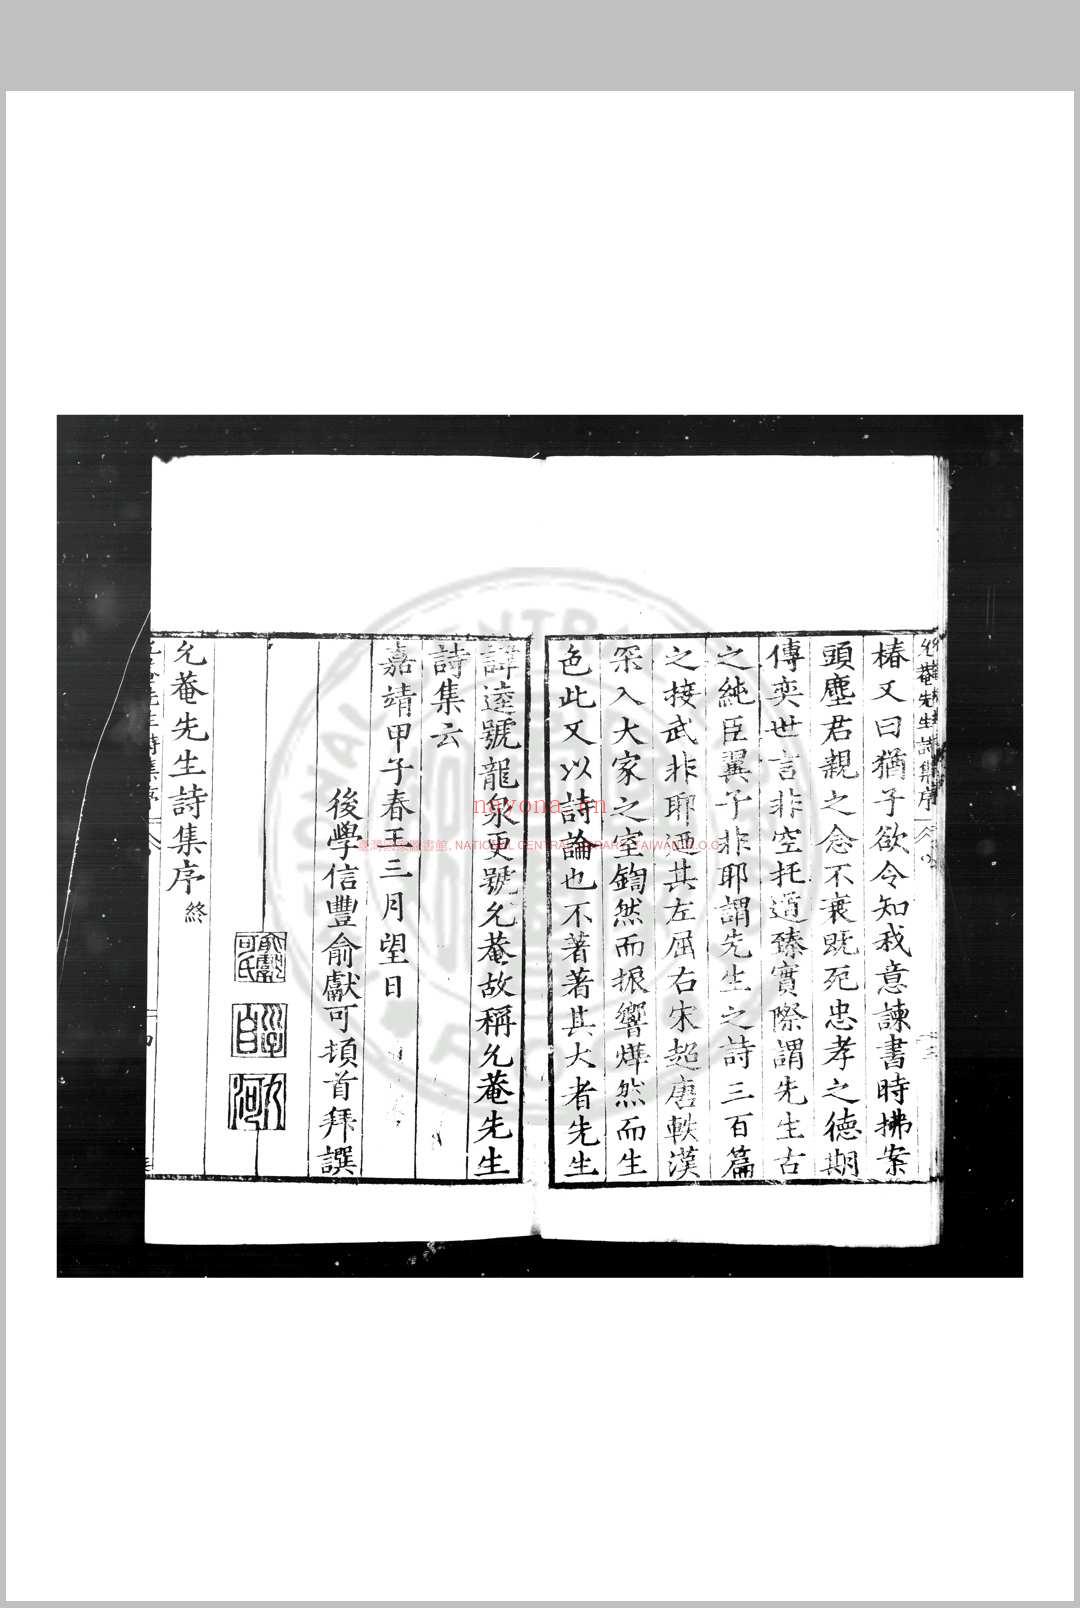 允菴先生詩集序
椿又曰猶子欲令知我意諫書時拂案
頭塵君親之念不衰既死忠孝之德期
傳奕世言非空托適臻實際謂先生古
之純臣翼子非耶謂先生之詩三百篇
之接武非耶迺其左屈右宋超唐軼漢
深入大家之室鍧然而振響燁然而生
色此又以詩論也不著著其大者先生
諱逵號龍泉更號允菴故稱允菴先生
詩集云
嘉靖甲子春王三月望日
後學信豐俞獻可頓首拜譔
允菴先生詩集序 終
nayona.cn
臺灣國家圖書館, NATIONAL CENTRAL LIBRARY, TAIWAN, R.O.C